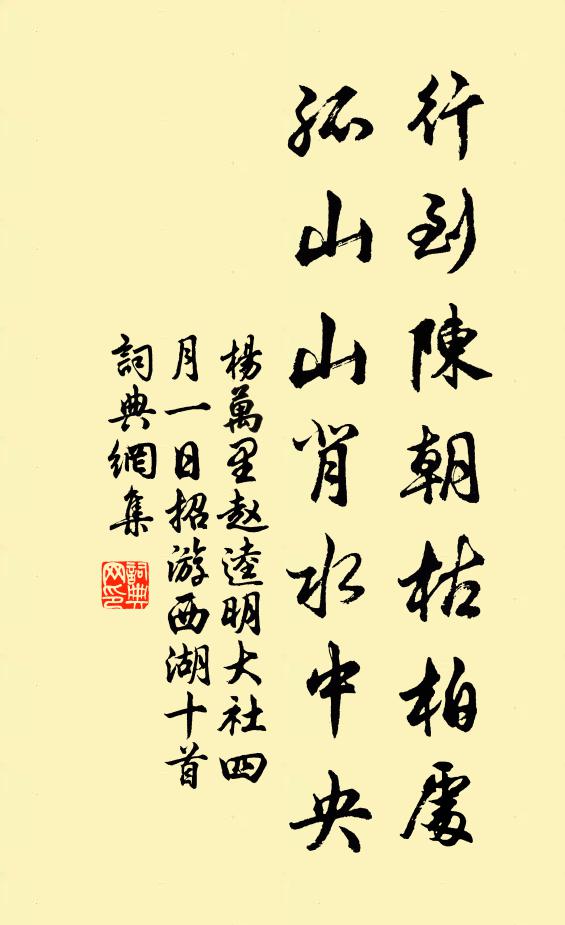 行到陳朝枯柏處
孤山山背水中央
楊萬里赵逵明大社四
月一日招游西湖十首
詞典網集
詞典网印